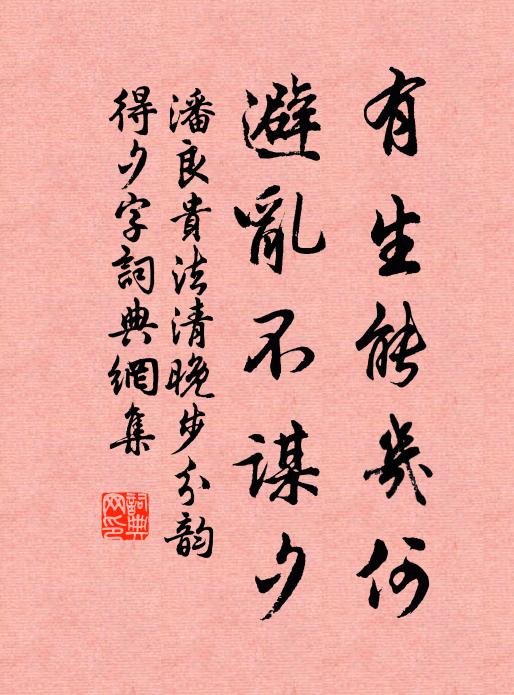 有生能幾何
避亂不謀夕
潘良貴法清晚步分韵
得夕字詞典網集
詞典
网印